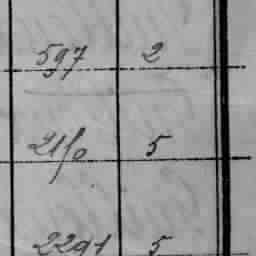 597 2
5
2291 5